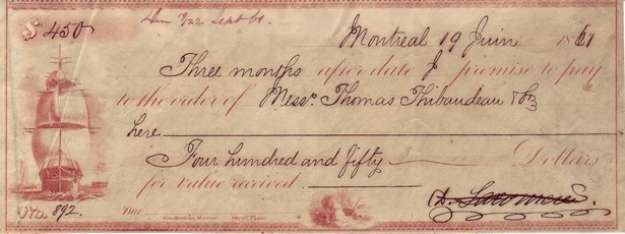 $ 450
Due 7/22 Sept 61.
Montreal 19 Juin 1861
Three months after date I promise to pay
to the order of Messrs. Thomas Thibaudeau &
here
Four hundred and fifty Dollars
for value received.
No. 892. Due